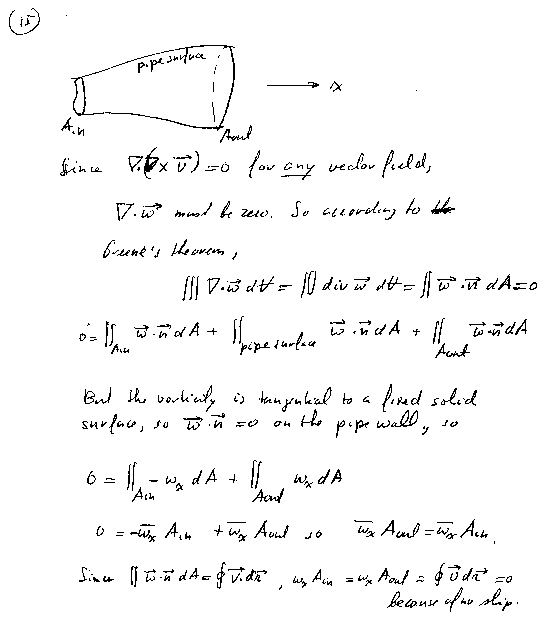 (15)
pipe surface
x
A_in
A_out
Since ∇·(∇ × v⃗) = 0 for any vector field,
∇·w⃗ must be zero. So according to
Greene's theorem,
∭ ∇·w⃗ dV = ∭ div w⃗ dV = ∬ w⃗·n⃗ dA = 0
0 = ∬_{A_in} w⃗·n⃗ dA + ∬_{pipe surface} w⃗·n⃗ dA + ∬_{A_out} w⃗·n⃗ dA
But the vorticity is tangential to a fixed solid
surface, so w⃗·n⃗ = 0 on the pipe wall, so
0 = ∬_{A_in} -w_x dA + ∬_{A_out} w_x dA
0 = -w̅_x A_in + w̅_x A_out so w̅_x A_out = w̅_x A_in.
Since ∬ w⃗·n⃗ dA = ∮ v⃗·dr⃗, w_x A_in = w_x A_out = ∮ v⃗ dr⃗ = 0
because of no slip.